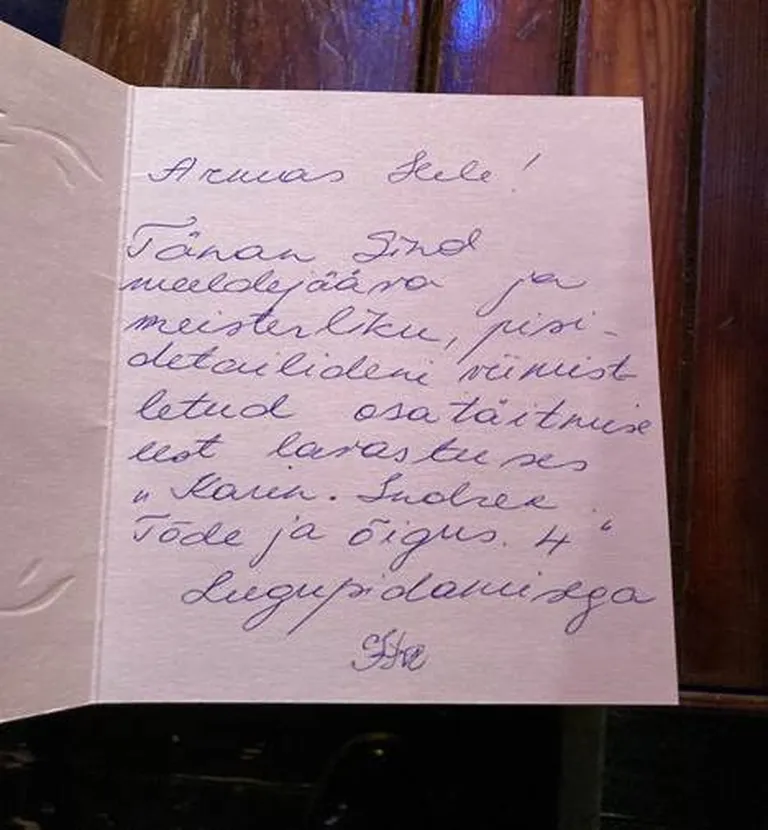 Armas Hele!
Tänan Sind
meeldejääva ja
meisterliku, pisi-
detailideni viimist-
letud osatäitmise
eest lavastuses
„Karin. Indrek.
Tõde ja õigus. 4"
Lugupidamisega